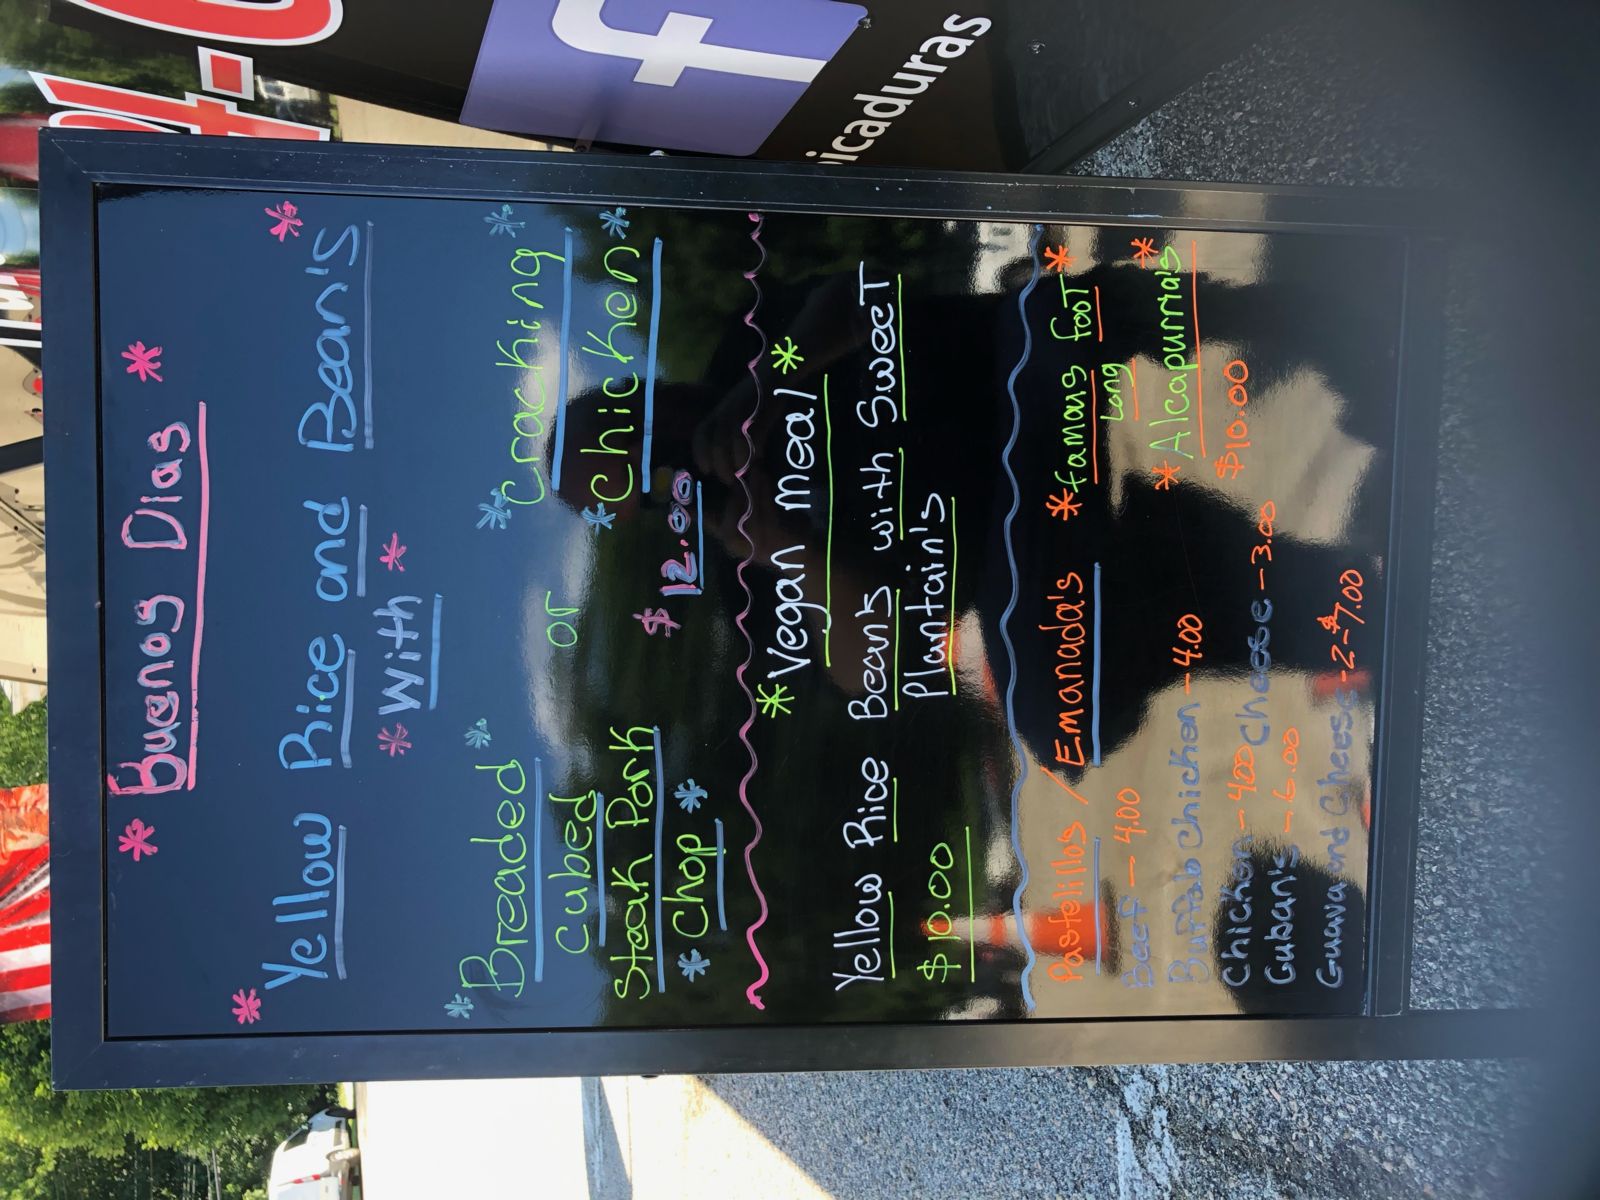 * Buenos Dias *
* Yellow Rice and Bean's *
* With *
* Breaded *
Cubed
Steak Pork
* Chop *
or
* Cracking *
* Chicken *
$ 12.00
* Vegan Meal *
Yellow Rice Beans with Sweet
Plantain's
$10.00
Pastelillos / Emanada's
Beef - 4.00
Buffalo Chicken - 4.00
Chicken - 4.00
Cheese - 3.00
Cuban's - 6.00
Guava and Cheese - 2-$7.00
* Famous Foot *
Long
* Alcapurria's *
$10.00
f
icaduras